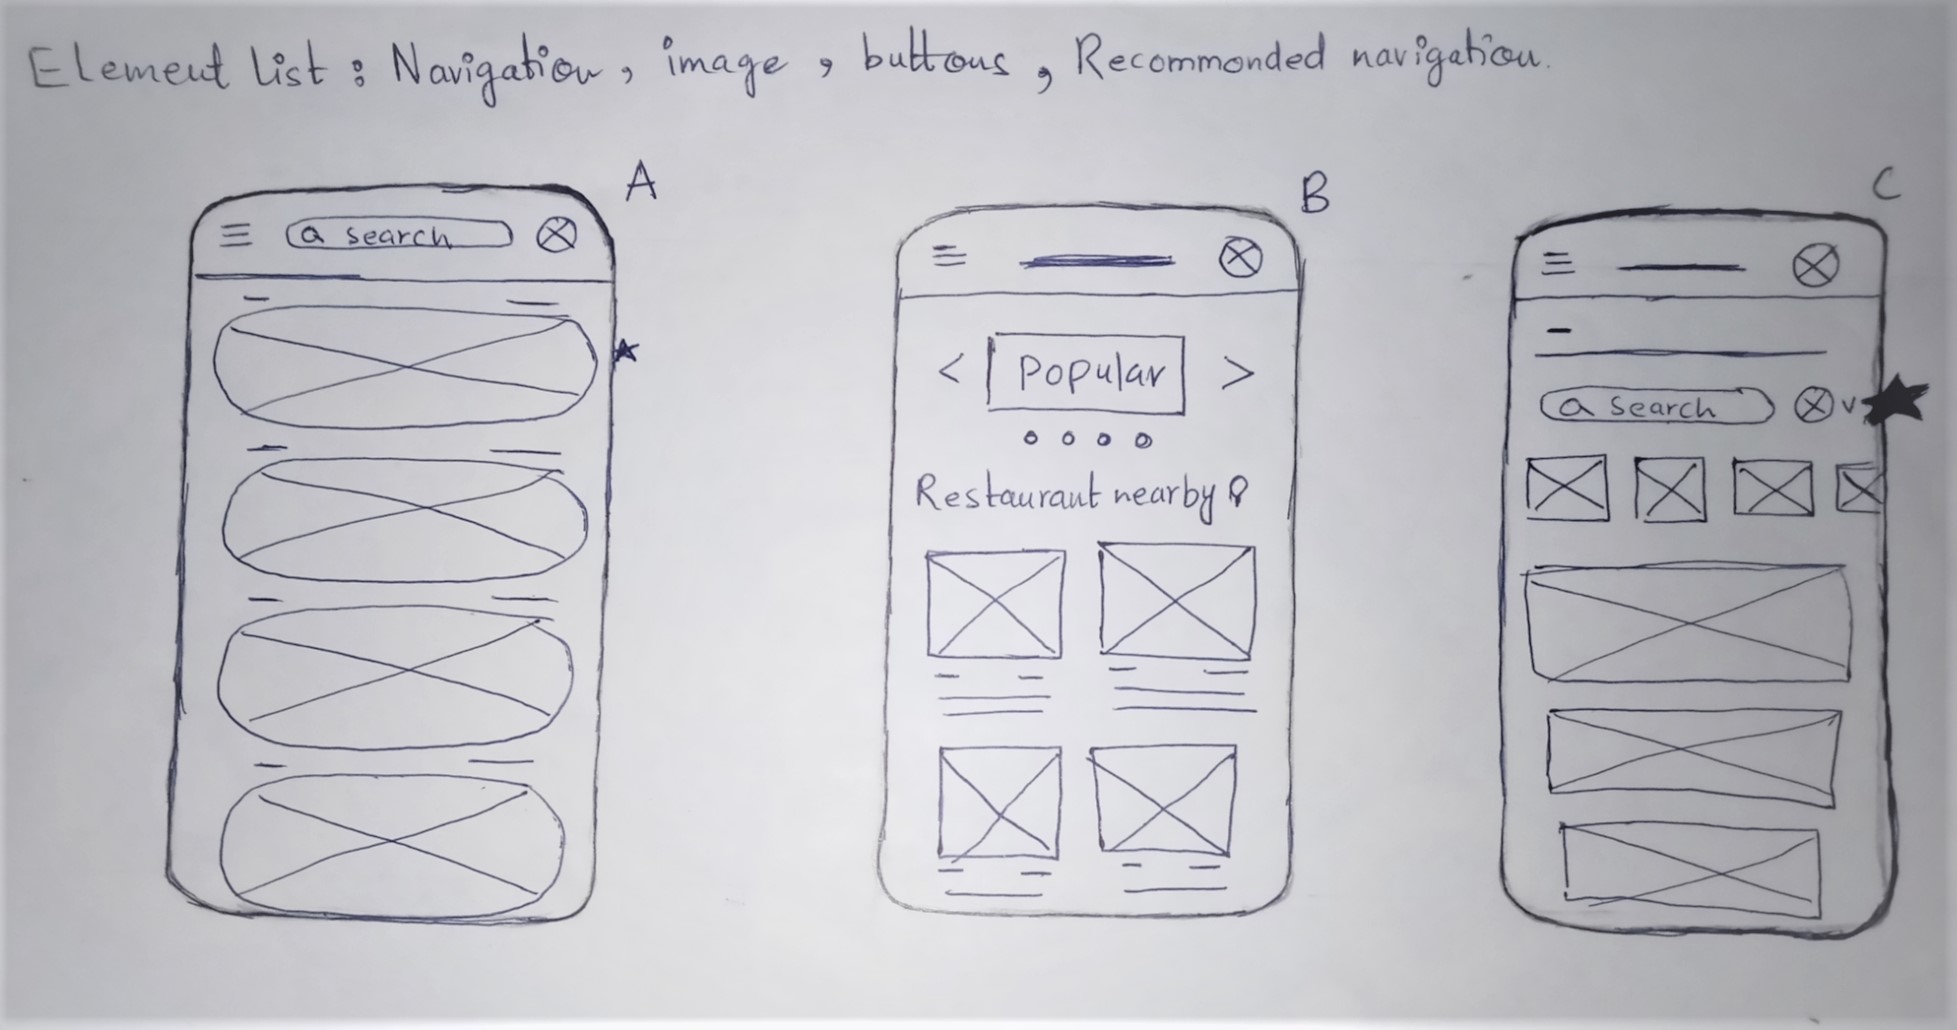 Element list : Navigation, image, buttons, Recommonded navigation.
A
B
C
search
Popular
search
Restaurant nearby